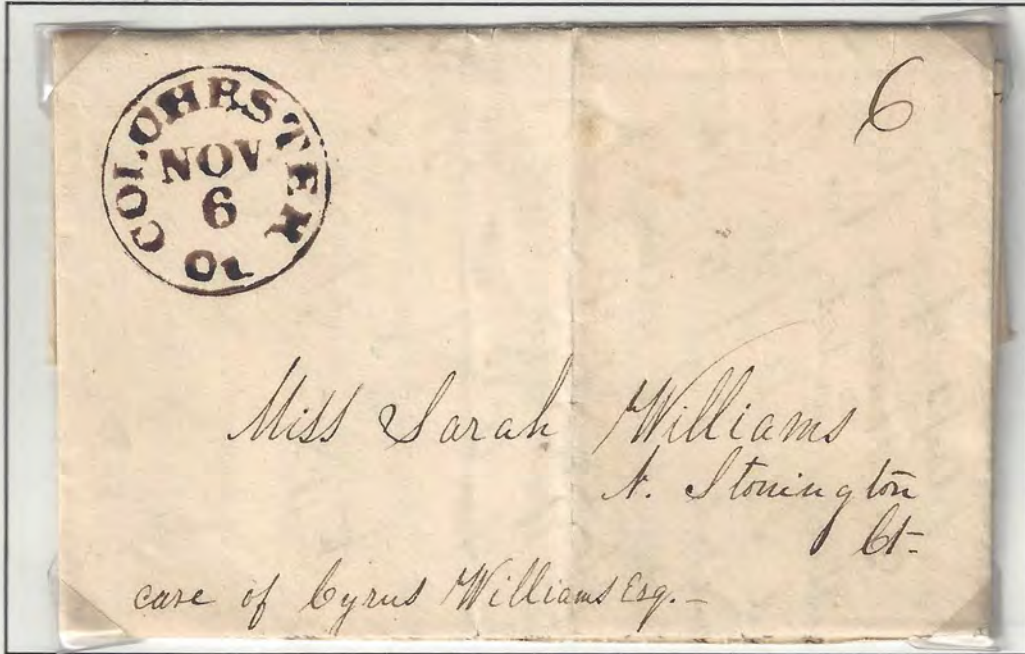 COLCHESTER
NOV
6
Ct
6
Miss Sarah Williams
N. Stonington
Ct-
care of Cyrus Williams Esq.-